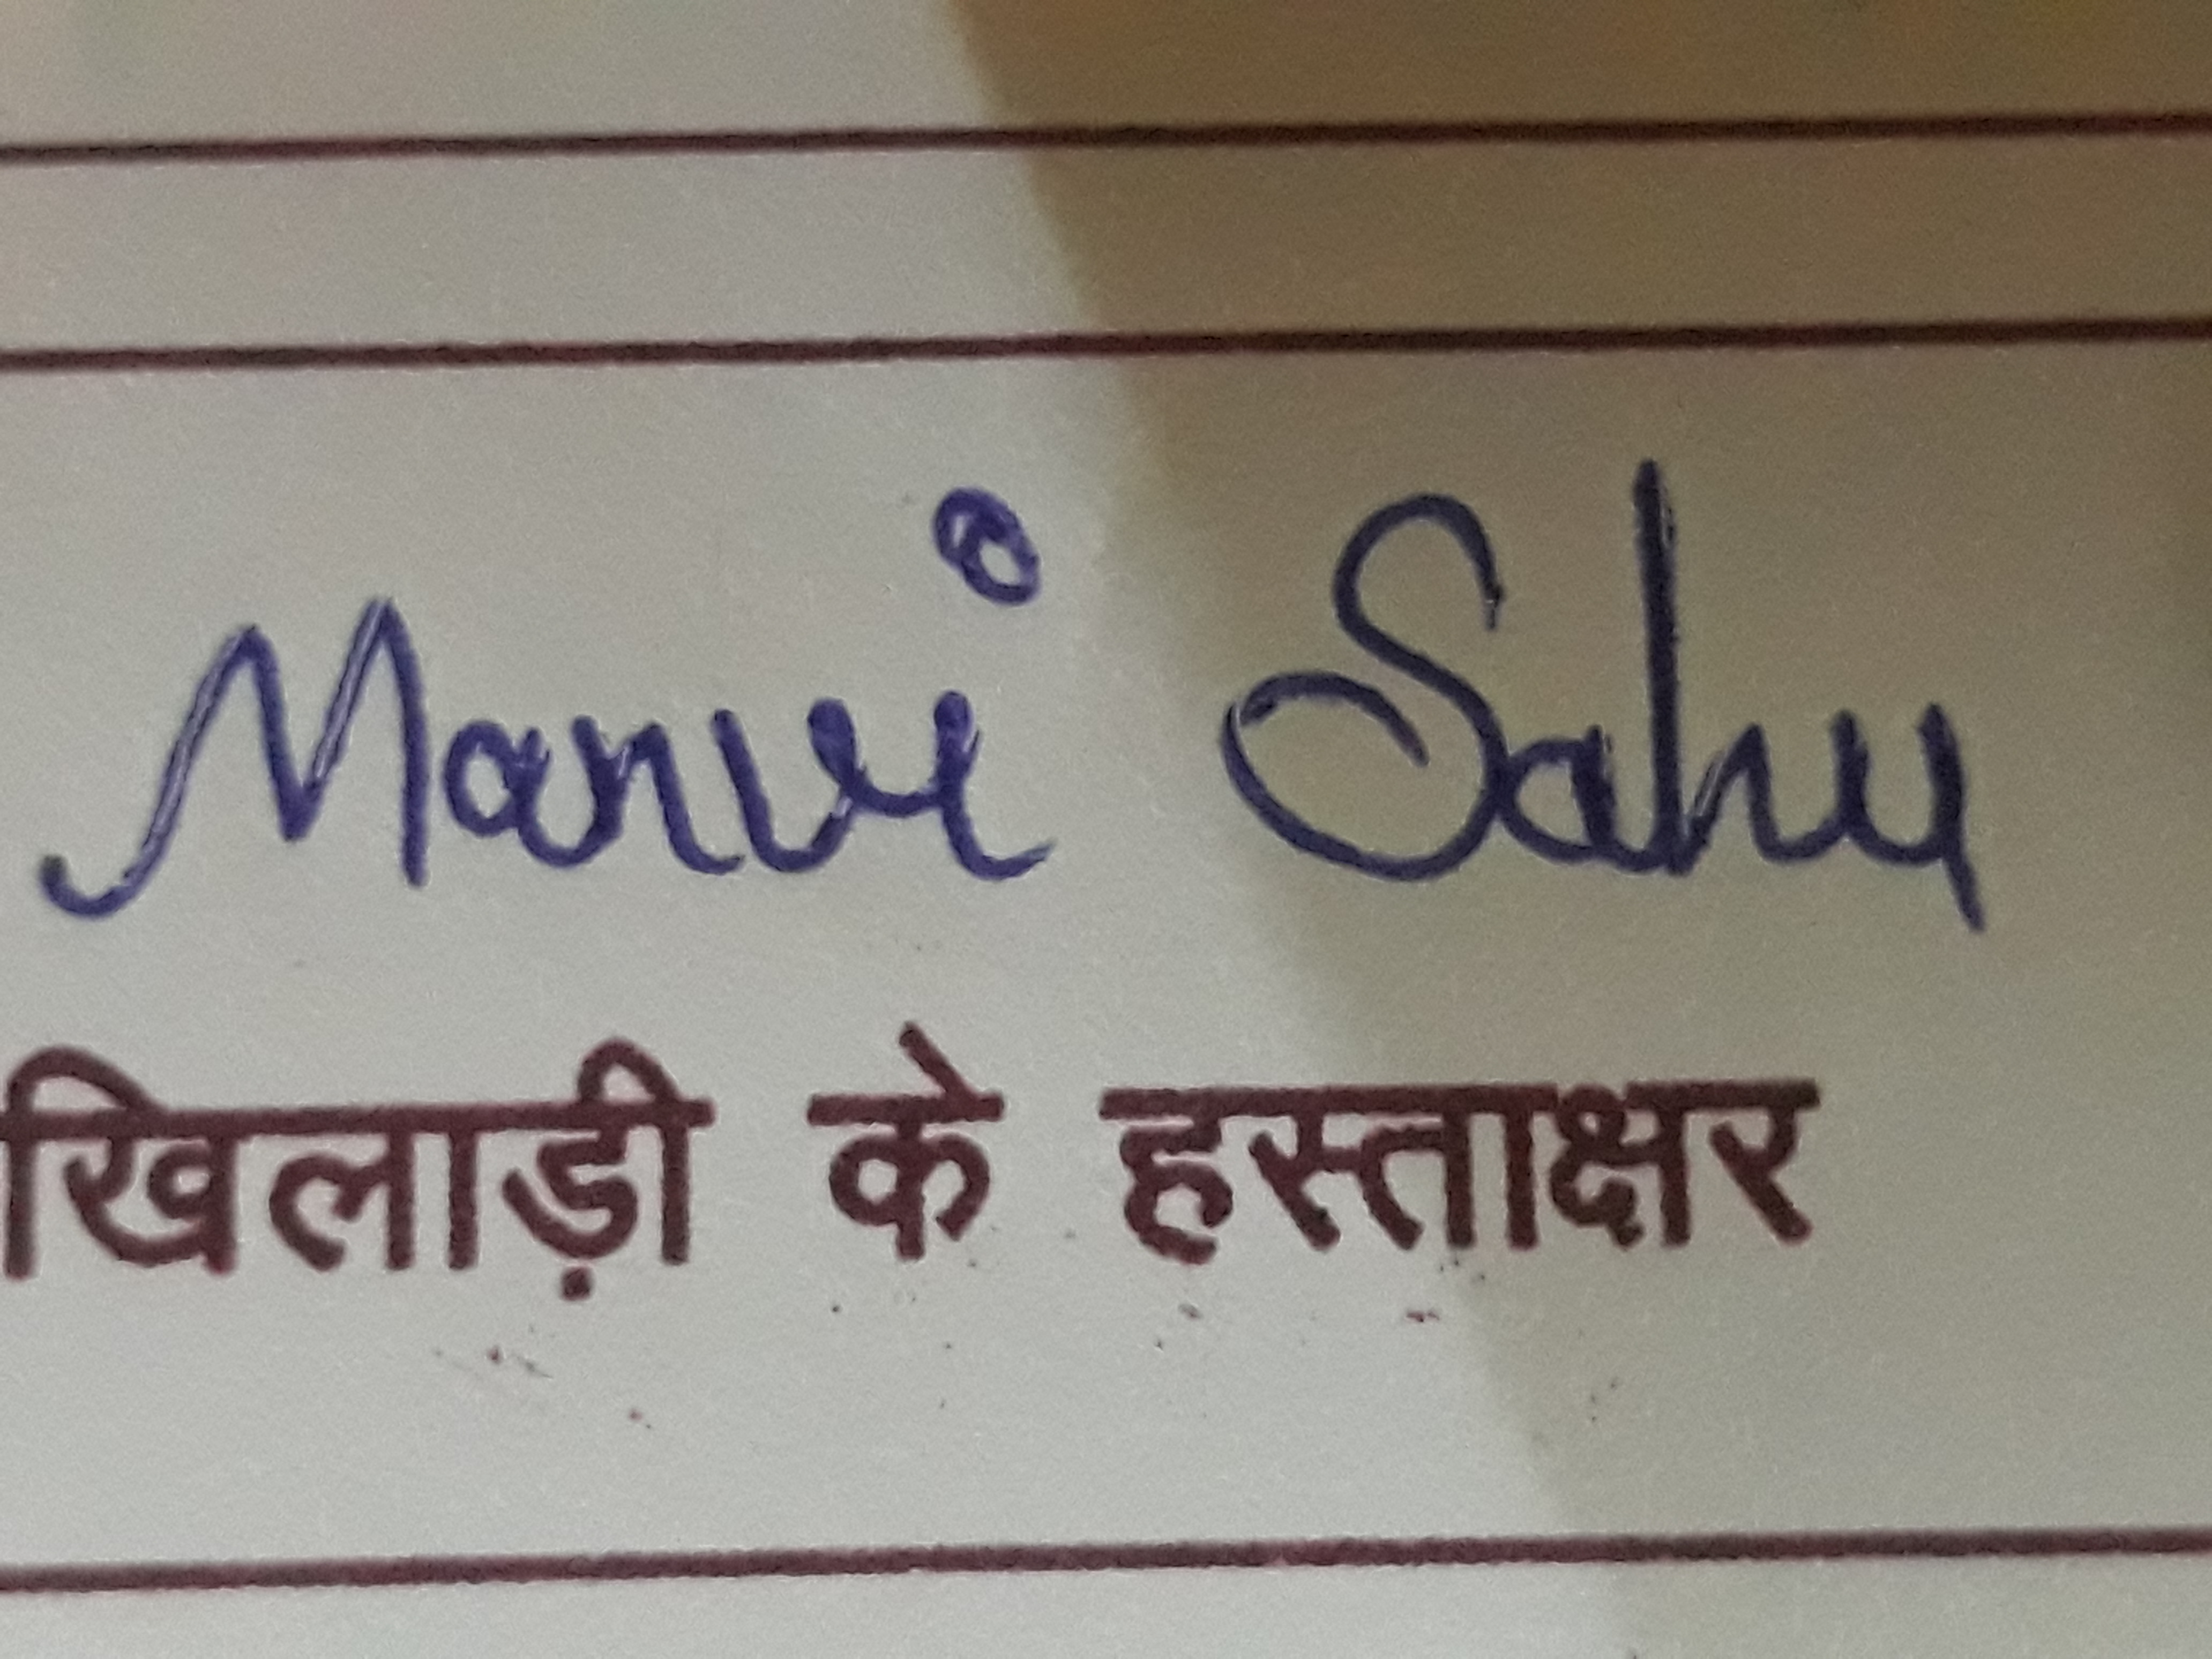 Manvi Sahu
खिलाड़ी के हस्ताक्षर